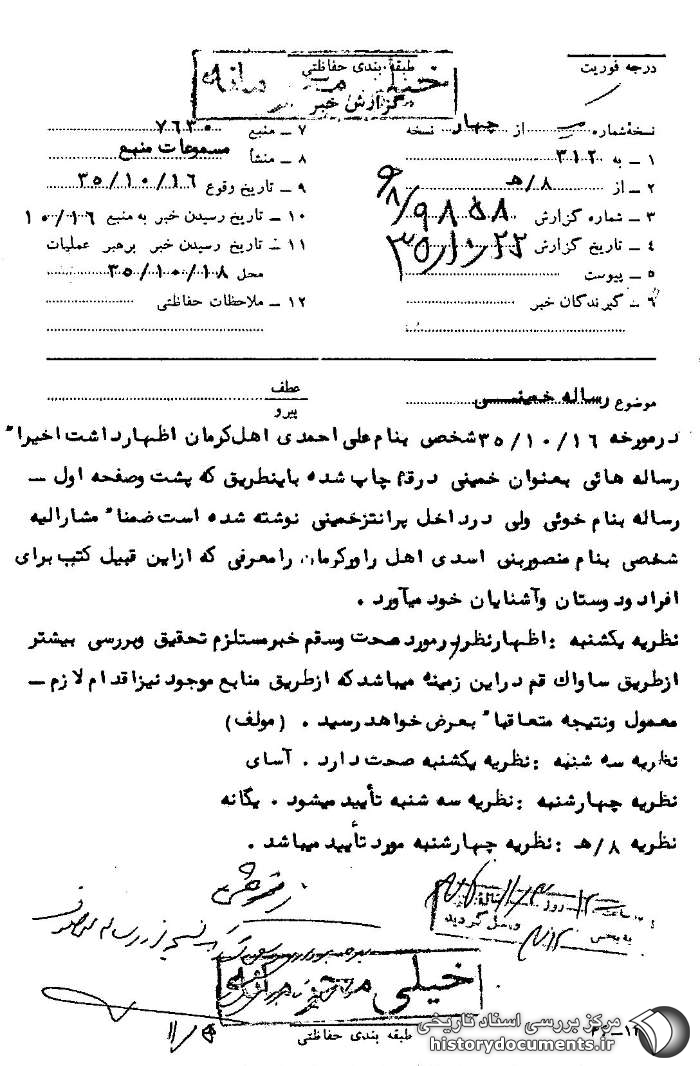 درجه فوریت
طبقه بندی حفاظتی
خیلی محرمانه
گزارش خبر
نسخه شماره از چهار نسخه
۱ – به ۳۱۲
۲ – از ۸/هـ
۳ – شماره گزارش ۹۸۵۸/۸هـ
۴ – تاریخ گزارش ۳۵/۱۰/۲۲
۵ – پیوست
۶ – گیرندگان خبر
۷ – منبع ۷۶۳۰
۸ – منشأ مسموعات منبع
۹ – تاریخ وقوع ۳۵/۱۰/۱۶
۱۰ – تاریخ رسیدن خبر به منبع ۱۰/۱۶
۱۱ – تاریخ رسیدن خبر برهبر عملیات
محل ۳۵/۱۰/۱۸
۱۲ – ملاحظات حفاظتی
موضوع رساله خمینی
عطف
پیرو
درمورخه ۳۵/۱۰/۱۶ شخصی بنام علی احمدی اهل کرمان اظهارداشت اخیرا"
رساله هائی بعنوان خمینی درقم چاپ شده باینطریق که پشت وصفحه اول –
رساله بنام خوئی ولی درداخل پرانتزخمینی نوشته شده است ضمنا" مشارالیه
شخصی بنام منصوربنی اسدی اهل راورکرمان رامعرفی که ازاین قبیل کتب برای
افراد ودوستان وآشنایان خود میآورد .
نظریه یکشنبه : اظهارنظر درمورد صحت وسقم خبرمستلزم تحقیق وبررسی بیشتر
ازطریق ساواک قم دراین زمینه میباشد که ازطریق منابع موجود نیزاقدام لازم –
معمول ونتیجه متعاقبا" بعرض خواهد رسید . (مولف)
نظریه سه شنبه : نظریه یکشنبه صحت دارد . آسای
نظریه چهارشنبه : نظریه سه شنبه تأیید میشود . یگانه
نظریه ۸/هـ : نظریه چهارشنبه مورد تأیید میباشد .
ساعت روز
به بخش واصل گردید
خیلی محرمانه
طبقه بندی حفاظتی
۱۱/۵
مرکز بررسی اسناد تاریخی
historydocuments.ir